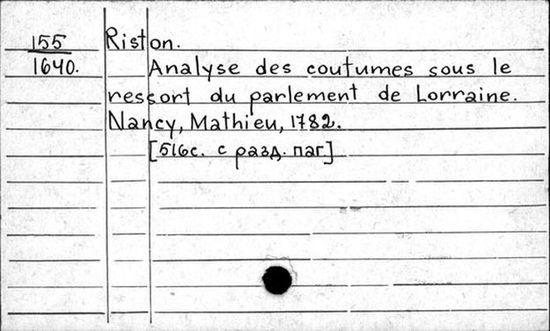 155
1640.
Riston.
Analyse des coutumes sous le
ressort du parlement de Lorraine.
Nancy, Mathieu, 1782.
[516с. с разд. паг.]